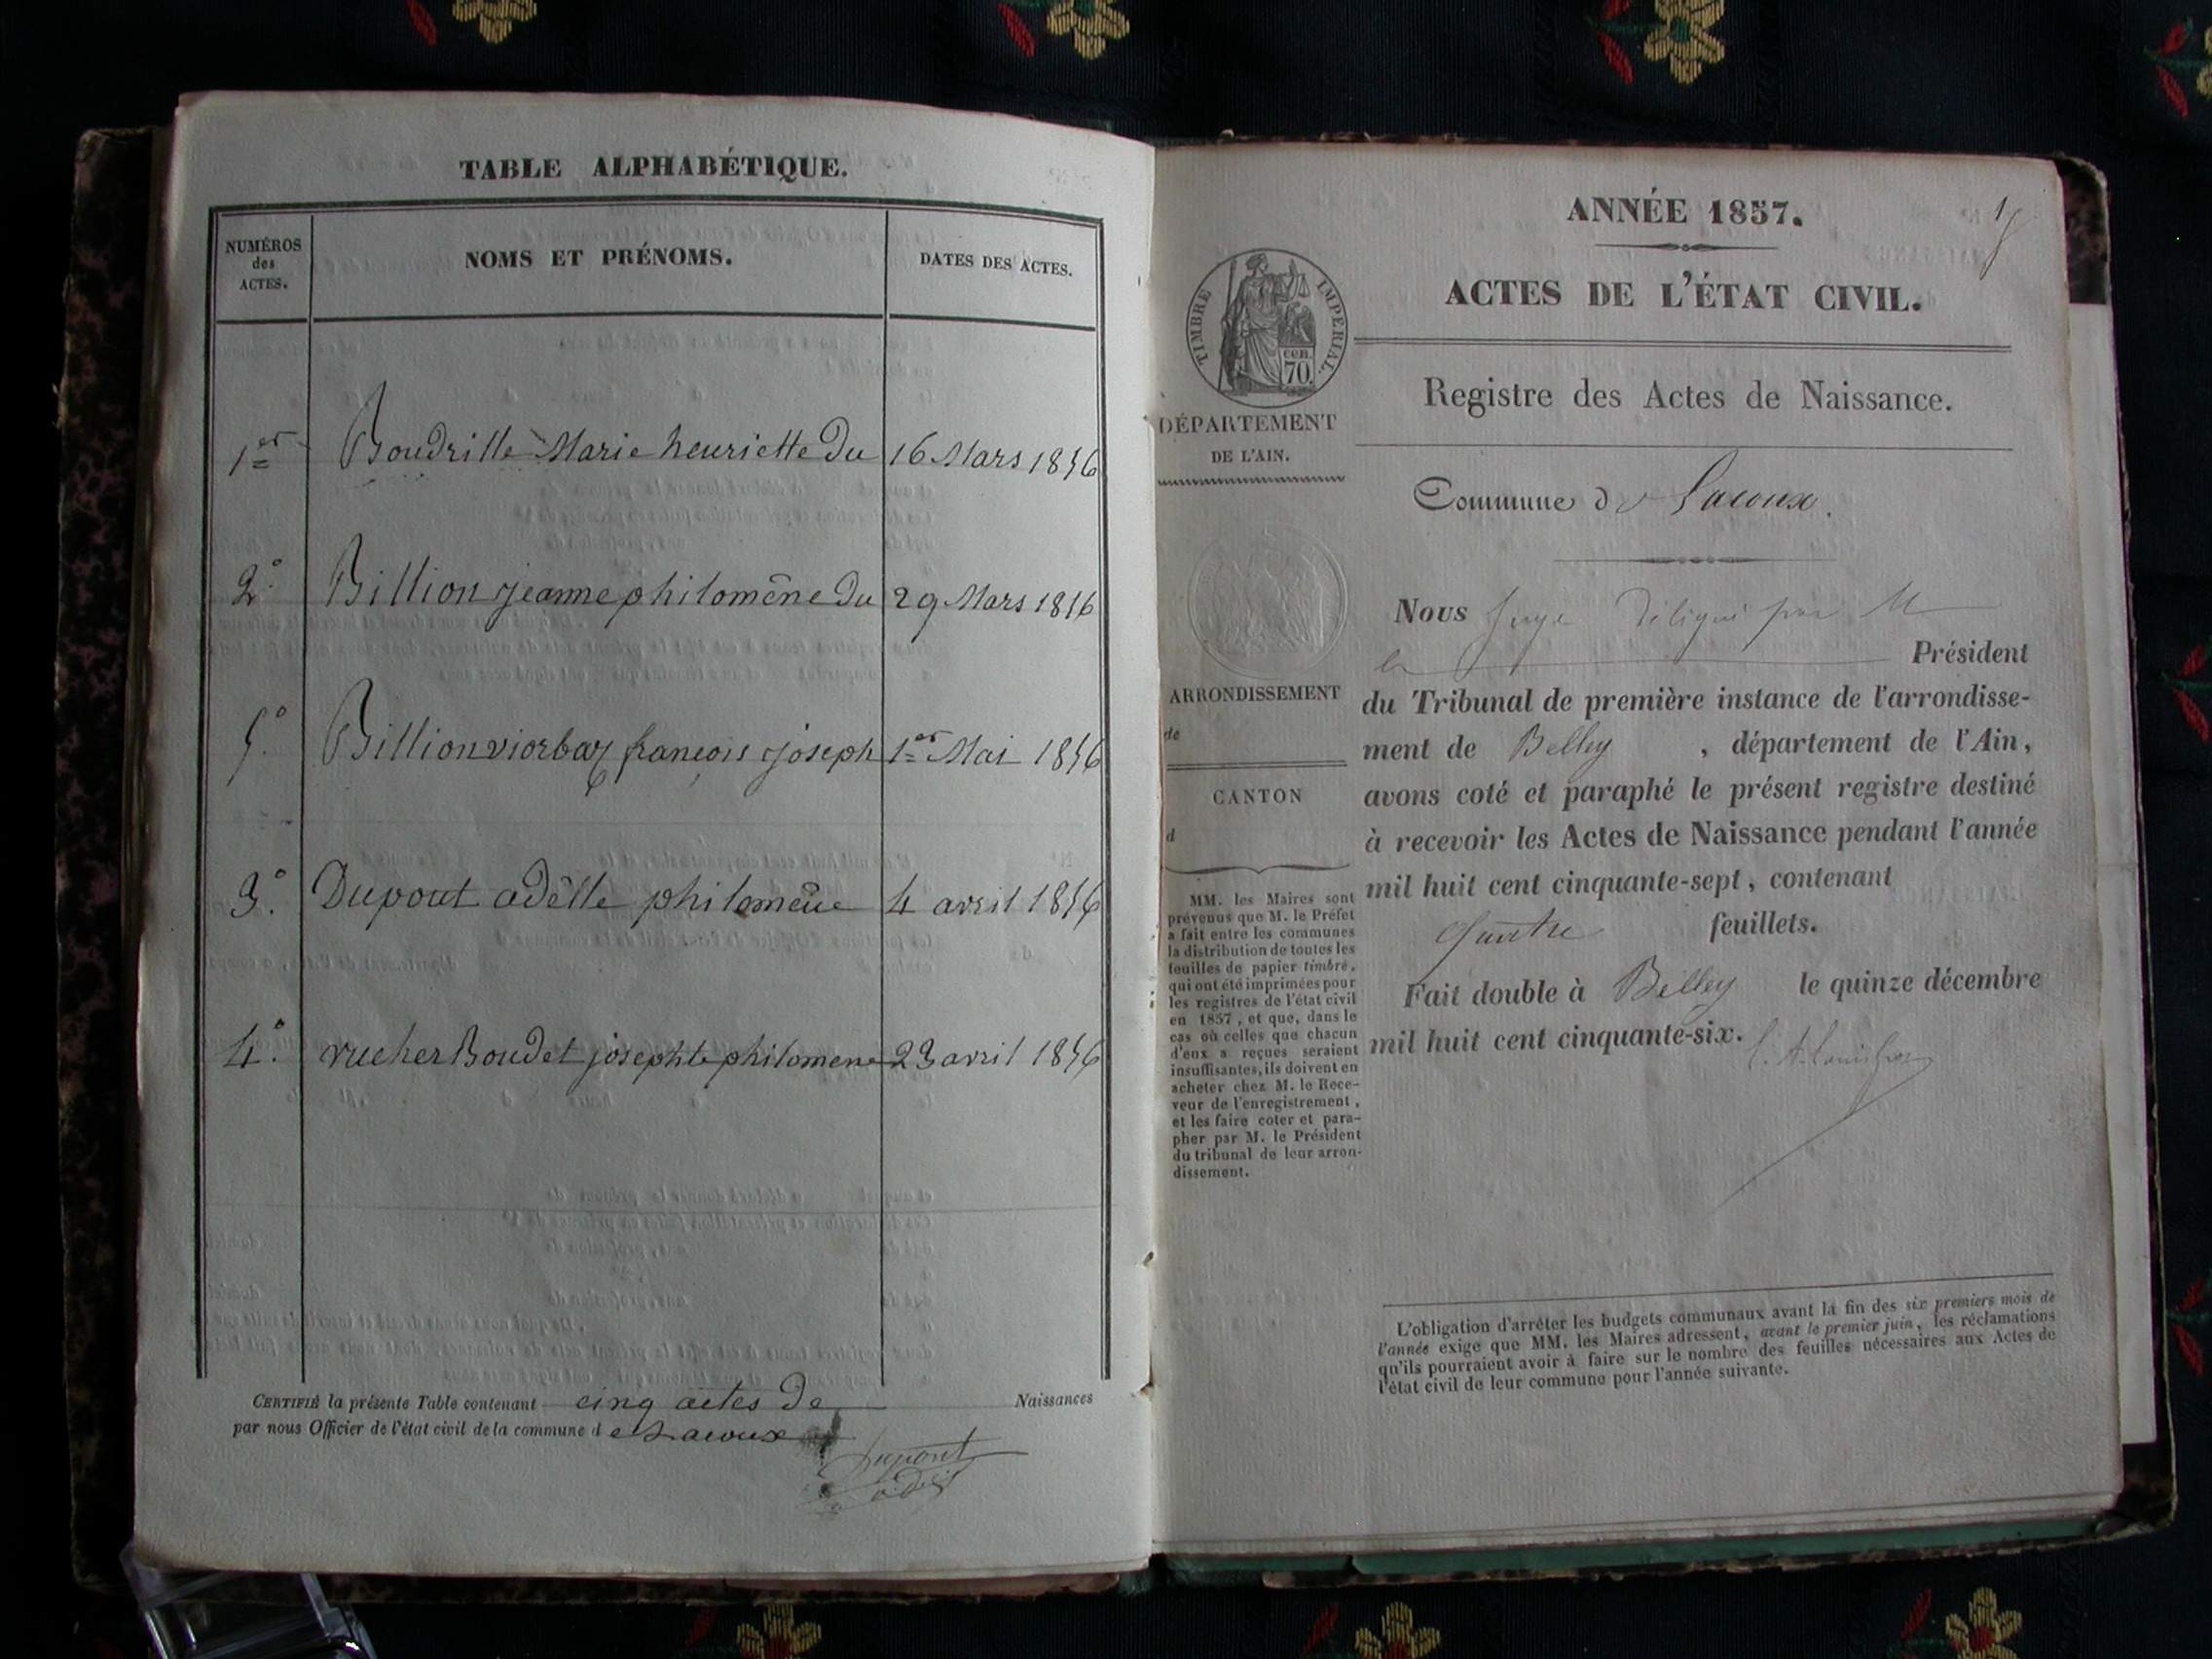 TABLE ALPHABÉTIQUE.
NUMÉROS des ACTES. NOMS ET PRÉNOMS. DATES DES ACTES.
1er Boudrille Marie henriette Du 16 Mars 1856
2° Billion jeanne philomène Du 29 Mars 1856
5° Billion viorbay françois joseph 1er Mai 1856
3° Dupont adèlle philomène 4 avril 1856
4° rucher Boudet josephte philomene 23 avril 1856
CERTIFIÉ la présente Table contenant cinq actes de Naissances
par nous Officier de l'état civil de la commune de Lacoux
Dupont
adj
ANNÉE 1857.
ACTES DE L'ÉTAT CIVIL.
TIMBRE IMPERIAL.
cen.
70.
DÉPARTEMENT
DE L'AIN.
ARRONDISSEMENT
de
CANTON
d
MM. les Maires sont
prévenus que M. le Préfet
a fait entre les communes
la distribution de toutes les
feuilles de papier timbré,
qui ont été imprimées pour
les registres de l'état civil
en 1857, et que, dans le
cas où celles que chacun
d'eux a reçues seraient
insuffisantes, ils doivent en
acheter chez M. le Rece-
veur de l'enregistrement,
et les faire coter et para-
pher par M. le Président
du tribunal de leur arron-
dissement.
Registre des Actes de Naissance.
Commune de Lacoux.
Nous Juge Délégué par M
le Président
du Tribunal de première instance de l'arrondisse-
ment de Belley, département de l'Ain,
avons coté et paraphé le présent registre destiné
à recevoir les Actes de Naissance pendant l'année
mil huit cent cinquante-sept, contenant
Quatre feuillets.
Fait double à Belley le quinze décembre
mil huit cent cinquante-six.
L'obligation d'arrêter les budgets communaux avant la fin des six premiers mois de
l'année exige que MM. les Maires adressent, avant le premier juin, les réclamations
qu'ils pourraient avoir à faire sur le nombre des feuilles nécessaires aux Actes de
l'état civil de leur commune pour l'année suivante.